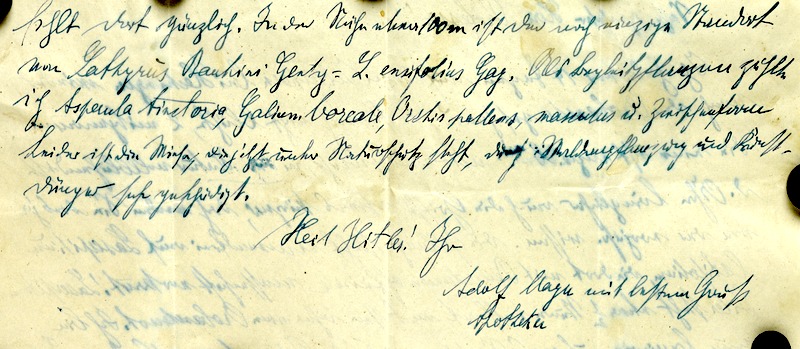 fehlt dort gänzlich. In der Nähe etwa 100 m ist der noch einzige Standort
von Lathyrus Bauhini Genty = L. ensifolius Gay. Als Begleitpflanzen zählte
ich Asperula tinctoria, Galium boreale, Orchis pallens, masculus u. Zwischenform
Leider ist die Wiese, die jetzt unter Naturschutz steht, durch Waldanpflanzung und Kunst-
dünger sehr geschädigt.
Heil Hitler! Ihr
Adolf Mayer mit bestem Gruß
Apotheker